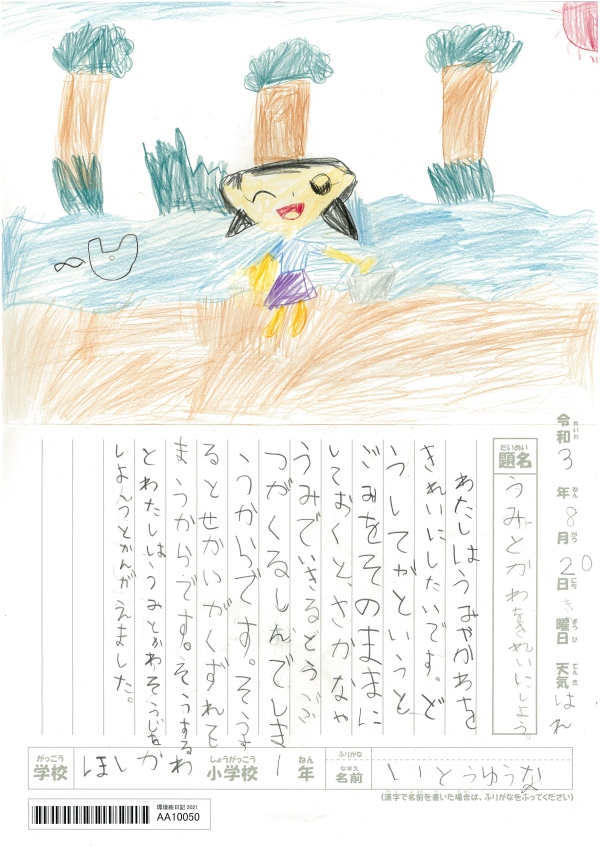 令和3年8月20日き曜日 天気はれ
れいわ ねん がつ にち ようび てんき
だいめい
題名 うみとかわをきれいにしよう。
わたしはうみやかわを
きれいにしたいです。ど
うしてかというと、
ごみをそのままに
しておくと、さかなや
うみでいきるどうぶ
つがくるしんでしま
うからです。そうす
るとせかいがくずれてし
まうからです。そうする
とわたしは、うみとかわそうじを
しようとかんがえました。
がっこう しょうがっこう ねん ふりがな
学校 ほしかわ 小学校 1 年 なまえ 名前 いとうゆうな
(漢字で名前を書いた場合は、ふりがなをふってください)
環境絵日記 2021
AA10050